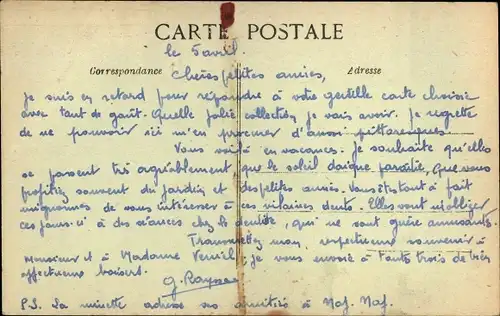 CARTE POSTALE
le 5 avril.
Correspondance Adresse
Chères petites amies,
Je suis en retard pour répondre à votre gentille carte choisie
avec tant de goût. Quelle jolie collection je vais avoir. Je regrette
de ne pouvoir ici m'en procurer d'aussi pittoresques.
Vous voilà en vacances. Je souhaite qu'elles
se passent très agréablement que le soleil daigne paraître, que vous
profitiez souvent du jardin et des petites amies. Vous êtes tout à fait
mignonnes de vous intéresser à ces vilaines dents. Elles vont m'obliger
ces jours-ci à des séances chez le dentiste, qui ne sont guère amusantes.
Transmettez mon respectueux souvenir à
Monsieur et à Madame je vous envoie à toutes trois de très
affectueux baisers.
G.
P.S. La minette adresse ses amitiés à Naf-Naf.